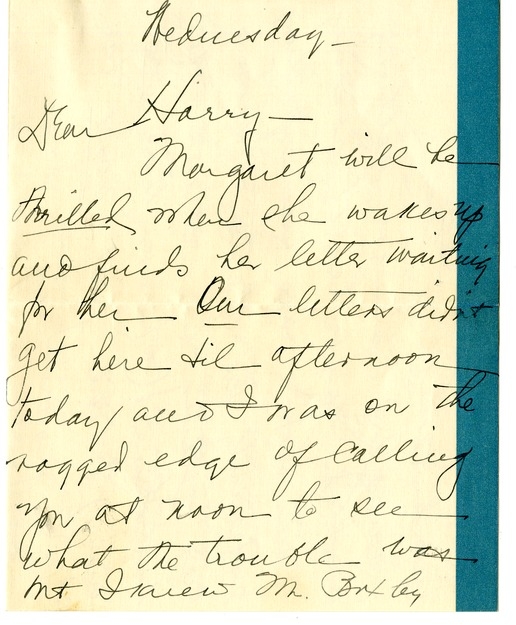 Wednesday—
Dear Harry—
Margaret will be
thrilled when she wakes up
and finds her letter waiting
for her Our letters didn't
get here til afternoon
today and I was on the
ragged edge of calling
you at noon to see
what the trouble was
I knew Mr.